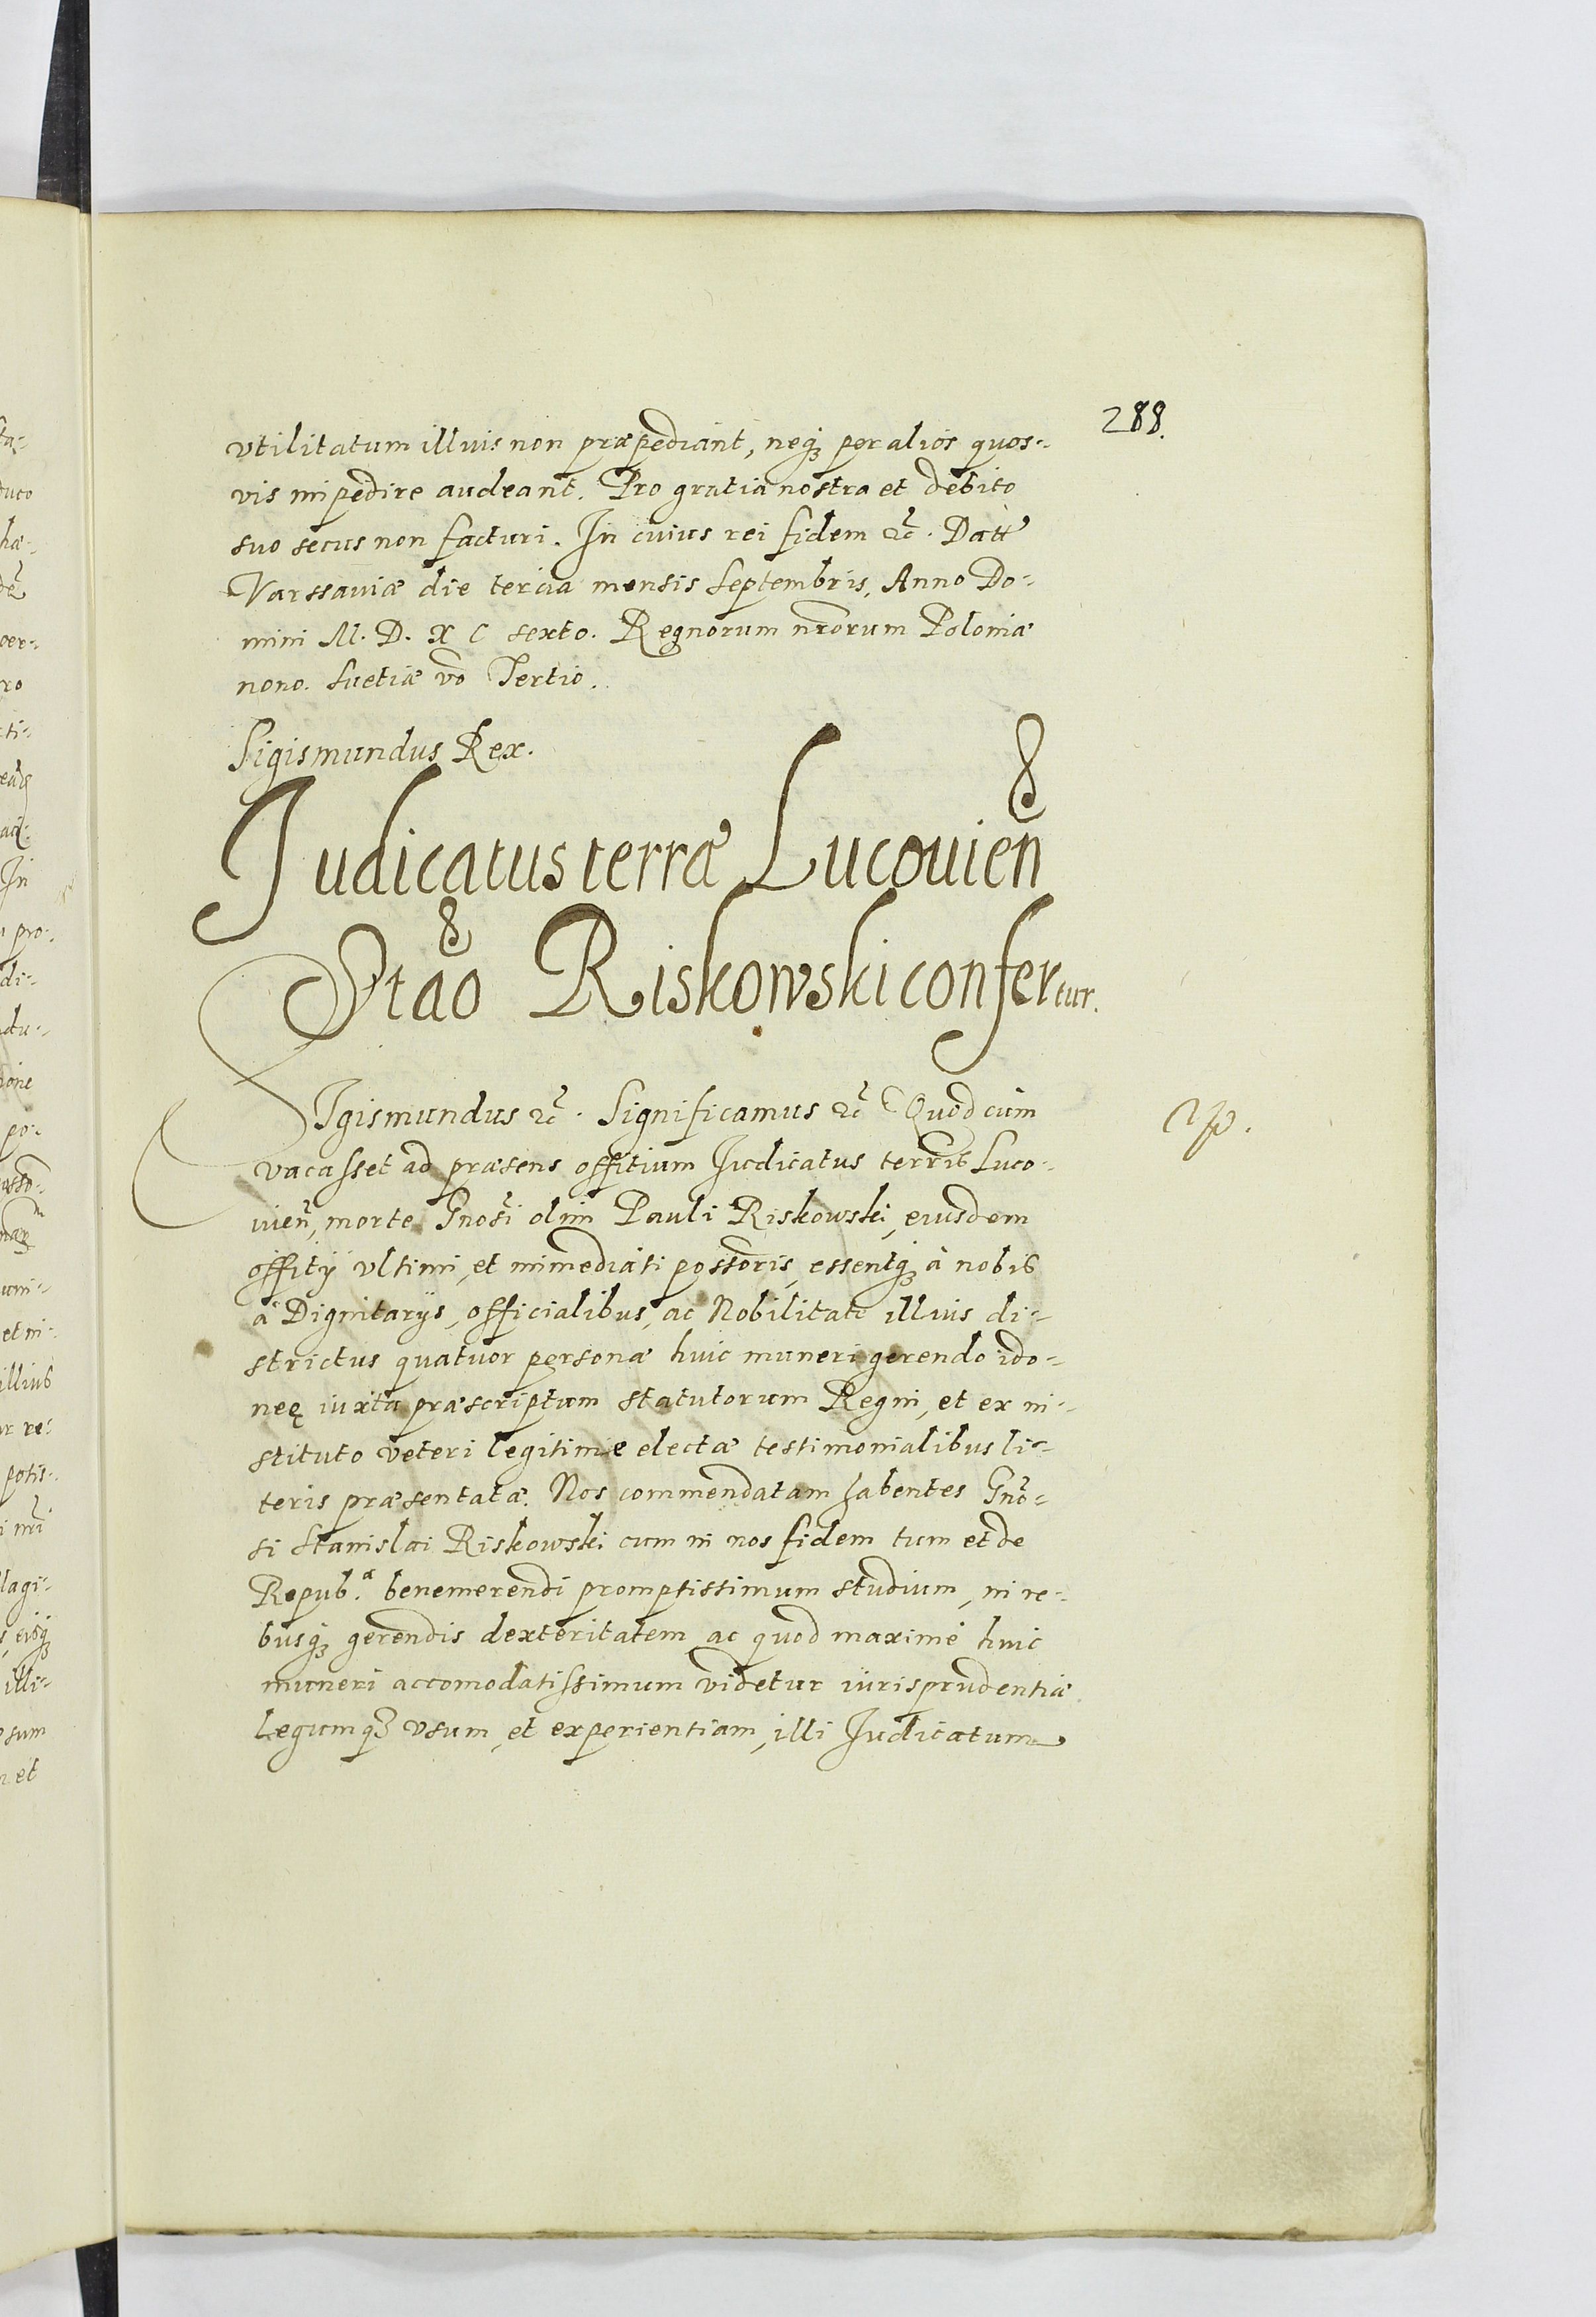 288.
vtilitatum illius non præpediant, neq3 per alios quos-
vis impedire audeant. Pro gratia nostra et debito
suo secus non facturi. In cuius rei fidem &c. Datt
Varssauiæ die tercia mensis Septembris, Anno Do-
mini M. D. X C sexto. Regnorum nrorum Poloniæ
nono. Suetiæ vo Tertio.
Sigismundus Rex.
Judicatus terræ Lucouien
Stao Riskowski confertur.
SIgismundus &c. Significamus &c Quod cum
vacasset ad præsens offitium Judicatus terris Luco-
uien, morte Gnosi olim Pauli Riskowski, eiusdem
offitij vltimi, et immediati possoris, essentq3 à nobis
à Dignitarijs, officialibus, ac Nobilitate illius di-
strictus quatuor personæ huic muneri gerendo ido-
neę iuxta præscriptum statutorum Regni, et ex in-
stituto veteri legitimie electæ testimonialibus li-
teris præsentatæ. Nos commendatam habentes Gno-
si Stanislai Riskowski cum in nos fidem tum et de
Repub.a benemerendi promptissimum studium, in re-
busq3 gerendis dexteritatem ac quod maximè huic
muneri accomodatissimum videtur iurisprudentiæ
Legumq3 vsum, et experientiam, illi Judicatum